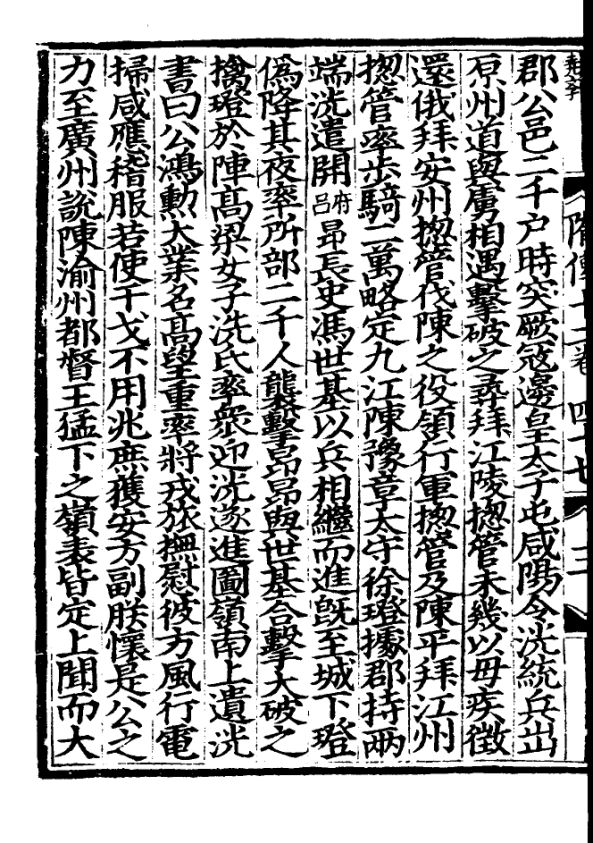 隋傳十二卷 四十七 三
郡公邑二千户時突厥寇邊皇太子屯咸陽令洸統兵出
原州道與虜相遇擊破之尋拜江陵揔管未幾以母疾徵
還俄拜安州揔管伐陳之役領行軍揔管及陳平拜江州
揔管率步騎二萬略定九江陳豫章太守徐璒據郡持兩
端洸遣開府吕昂長史馮世基以兵相繼而進旣至城下璒
偽降其夜率所部二千人襲擊昂昂與世基合擊大破之
擒璒於陣高梁女子洗氏率衆迎洸遂進圖嶺南上遺洸
書曰公鴻勳大業名高望重率將戎旅撫慰彼方風行電
掃咸應稽服若使干戈不用兆庶獲安方副朕懷是公之
力至廣州說陳渝州都督王猛下之嶺表皆定上聞而大